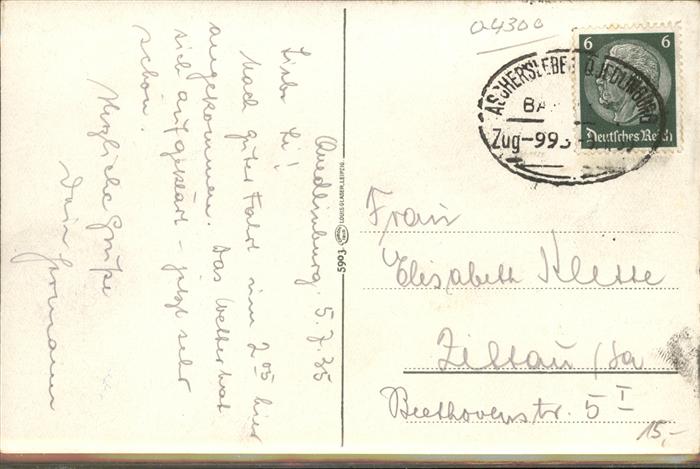 Quedlinburg, 5.7.35
Liebe Li!
Nach guter Fahrt um 2⁰⁵ hier
angekommen. Das Wetter hat
sich aufgeklärt – jetzt sehr
schön.
Herzliche Grüße
Dein Hermann
5903
LOUIS GLASER, LEIPZIG
04300
ASCHERSLEBEN QUEDLINBURG
BA
Zug-993
6 6
Deutsches Reich
Frau
Elisabeth Klette
Zittau /Sa
Beethovenstr. 5 I
15,-